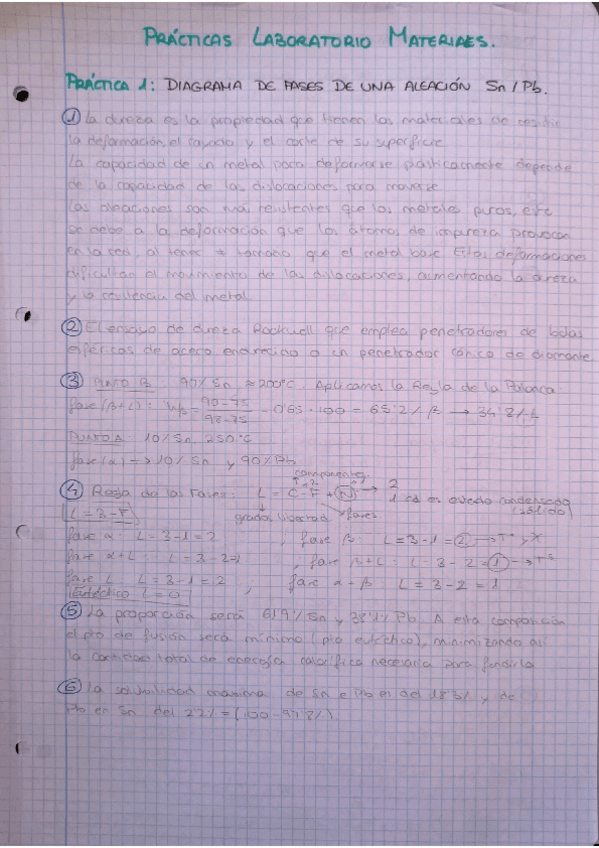 PRÁCTICAS LABORATORIO MATERIAES.
PRÁCTICA 1: DIAGRAMA DE FASES DE UNA ALEACIÓN Sn/Pb.
① La dureza es la propiedad que tienen los materiales de resistir
la deformación, el rayado y el corte de su superficie
La capacidad de un metal para deformarse plásticamente depende
de la capacidad de las dislocaciones para moverse
Las aleaciones son más resistentes que los metales puros, esto
se debe a la deformación que los átomos de impureza provocan
en la red, al tener ≠ tamaño que el metal base. Estas deformaciones
dificultan el movimiento de las dislocaciones, aumentando la dureza
y la resistencia del metal.
② El ensayo de dureza Rockwell que emplea penetradores de bolas
esféricas de acero endurecido o un penetrador cónico de diamante
③ PUNTO B: 90% Sn ≈ 200ºC. Aplicamos la Regla de la Palanca
fase (β+L): Wβ = 0'65 · 100 = 65'2% β → 34'8% L
PUNTO A: 10% Sn, 250ºC
fase (α) → 10% Sn y 90% Pb
componentes
④ Regla de las Fases: L = C - F + Ⓝ → 2
1 es en estado condensado
(sólido)
L = 3 - F
grados libertad fases
fase α: L = 3 - 1 = 2 , fase β: L = 3 - 1 = ② → Tº, X
fase α+L: L = 3 - 2 = 1 , fase β+L: L = 3 - 2 = ① → Tº
fase L: L = 3 - 1 = 2 ; fase α - β: L = 3 - 2 = 1
Eutéctico L = 0
⑤ La proporción será 61'9% Sn y 38'1% Pb. A esta composición
el pto de fusión será mínimo (pto eutéctico), minimizando así
la cantidad total de energía calorífica necesaria para fundirla
⑥ La solubilidad máxima de Sn e Pb es del 18'3% y de
Pb en Sn del 2'2% = (100 - 97'8%)